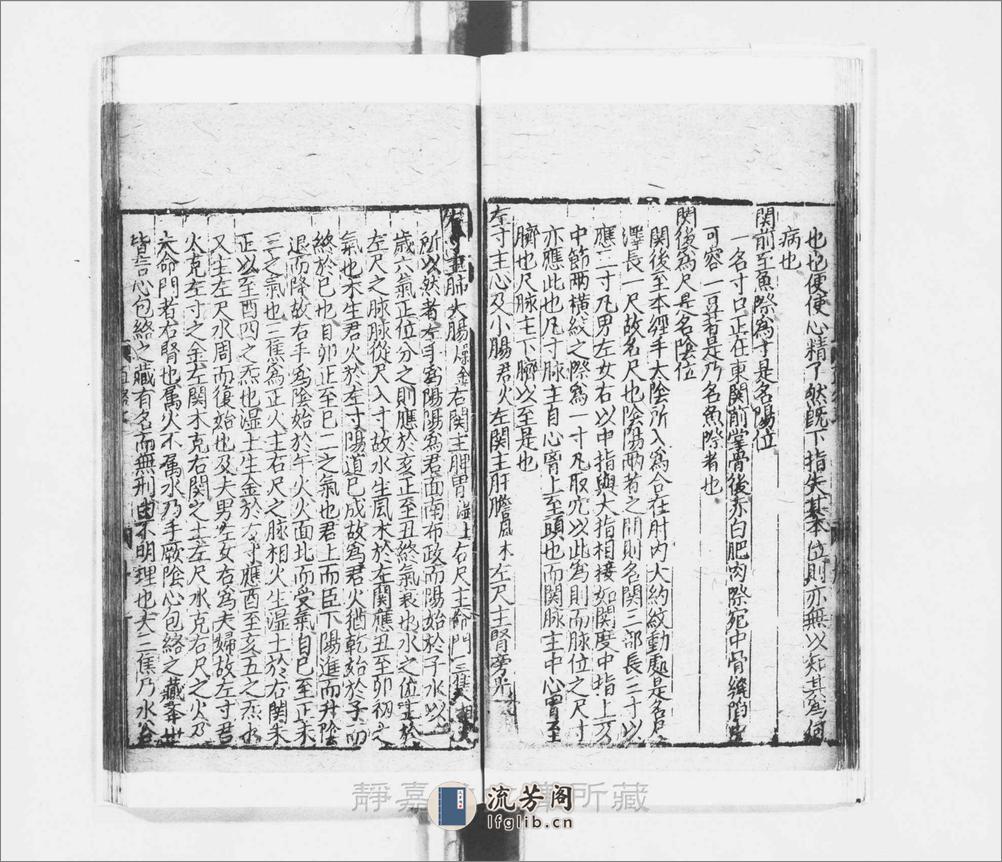 也也便使心精了然旣下指失其本位則亦無以知其爲何
病也
関前至魚際爲寸是名陽位
一名寸口正在東関前掌骨後赤白肥肉際宛中骨繞陷
可容一豆者是乃名魚際者也
関後爲尺是名陰位
関後至本經手太陰所入爲合在肘内大約紋動處是名尺
澤長一尺故名尺也陰陽兩者之間則名関二部長三寸以
應二寸凡男左女右以中指與大指相接如関度中指上及
中節兩橫紋之際爲一寸凡取穴以此爲則而脉位之尺寸
亦應此也凡寸脉主自心膏上至頭也而関脉主中心胃至
臍也尺脉主下臍以至是也
左寸主心及小腸君火左関主肝膽風木左尺主腎膀
主肺大腸燥金右関主脾胃濕土右尺主命門三焦相火
所以然者左手爲陽陽爲君面南布政而陽始於子水以
歲六氣正位分之則應於亥正至丑終氣衰也水之位主於
左尺之脉脉從尺入寸故水生風木於左関應丑至卯初之
氣也木生君火於左寸陽道已成故爲君火猶乾始於子而
終於巳也自卯正至巳二之氣也君上而臣下陽進而升陰
退而降故右手爲陰始於午火火面北而受氣自巳至正未
三之氣也三焦爲正火主右尺之脉相火生濕土於右関未
正以至酉四之炁也濕土生金於右寸應酉至亥五之炁
又生左尺水周而復始也及夫男左女右爲夫婦故左寸君
火克左寸之金左関木克右関之土左尺水克右尺之火乃
夫命門者右腎也属火不属水乃手厥隂心包絡之藏
皆言心包絡之藏有名而無刑由不明理也夫三焦乃水谷
靜嘉 所藏
流芳阁
lfglib.cn